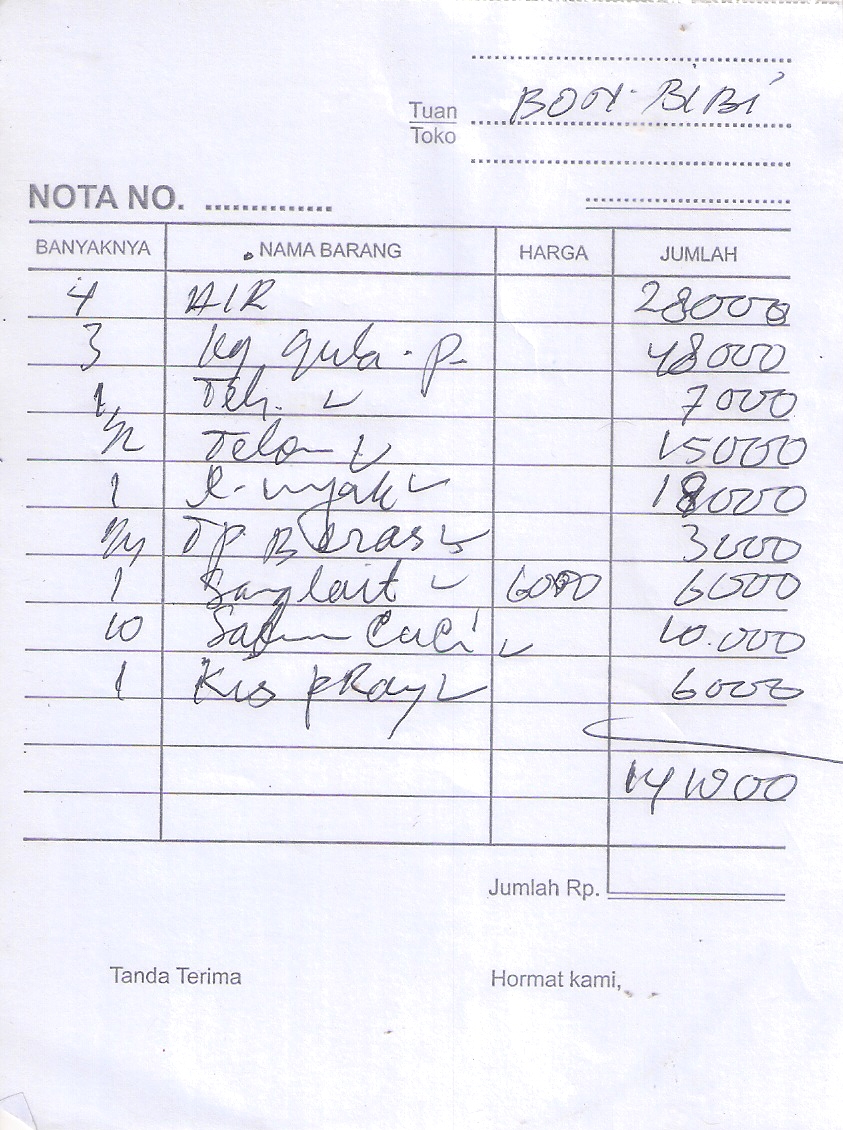 Tuan
Toko BOOT. BIBI
NOTA NO. ................
BANYAKNYA NAMA BARANG HARGA JUMLAH
4 AIR 28000
3 kg gula. p. 48000
1 Teh. 7000
1/2 Telon 15000
1 18000
1/4 TP Beras 3000
1 Sanglait 6000 6000
10 Sabun Cuci 10.000
1 6000
141000
Jumlah Rp.
Tanda Terima Hormat kami,